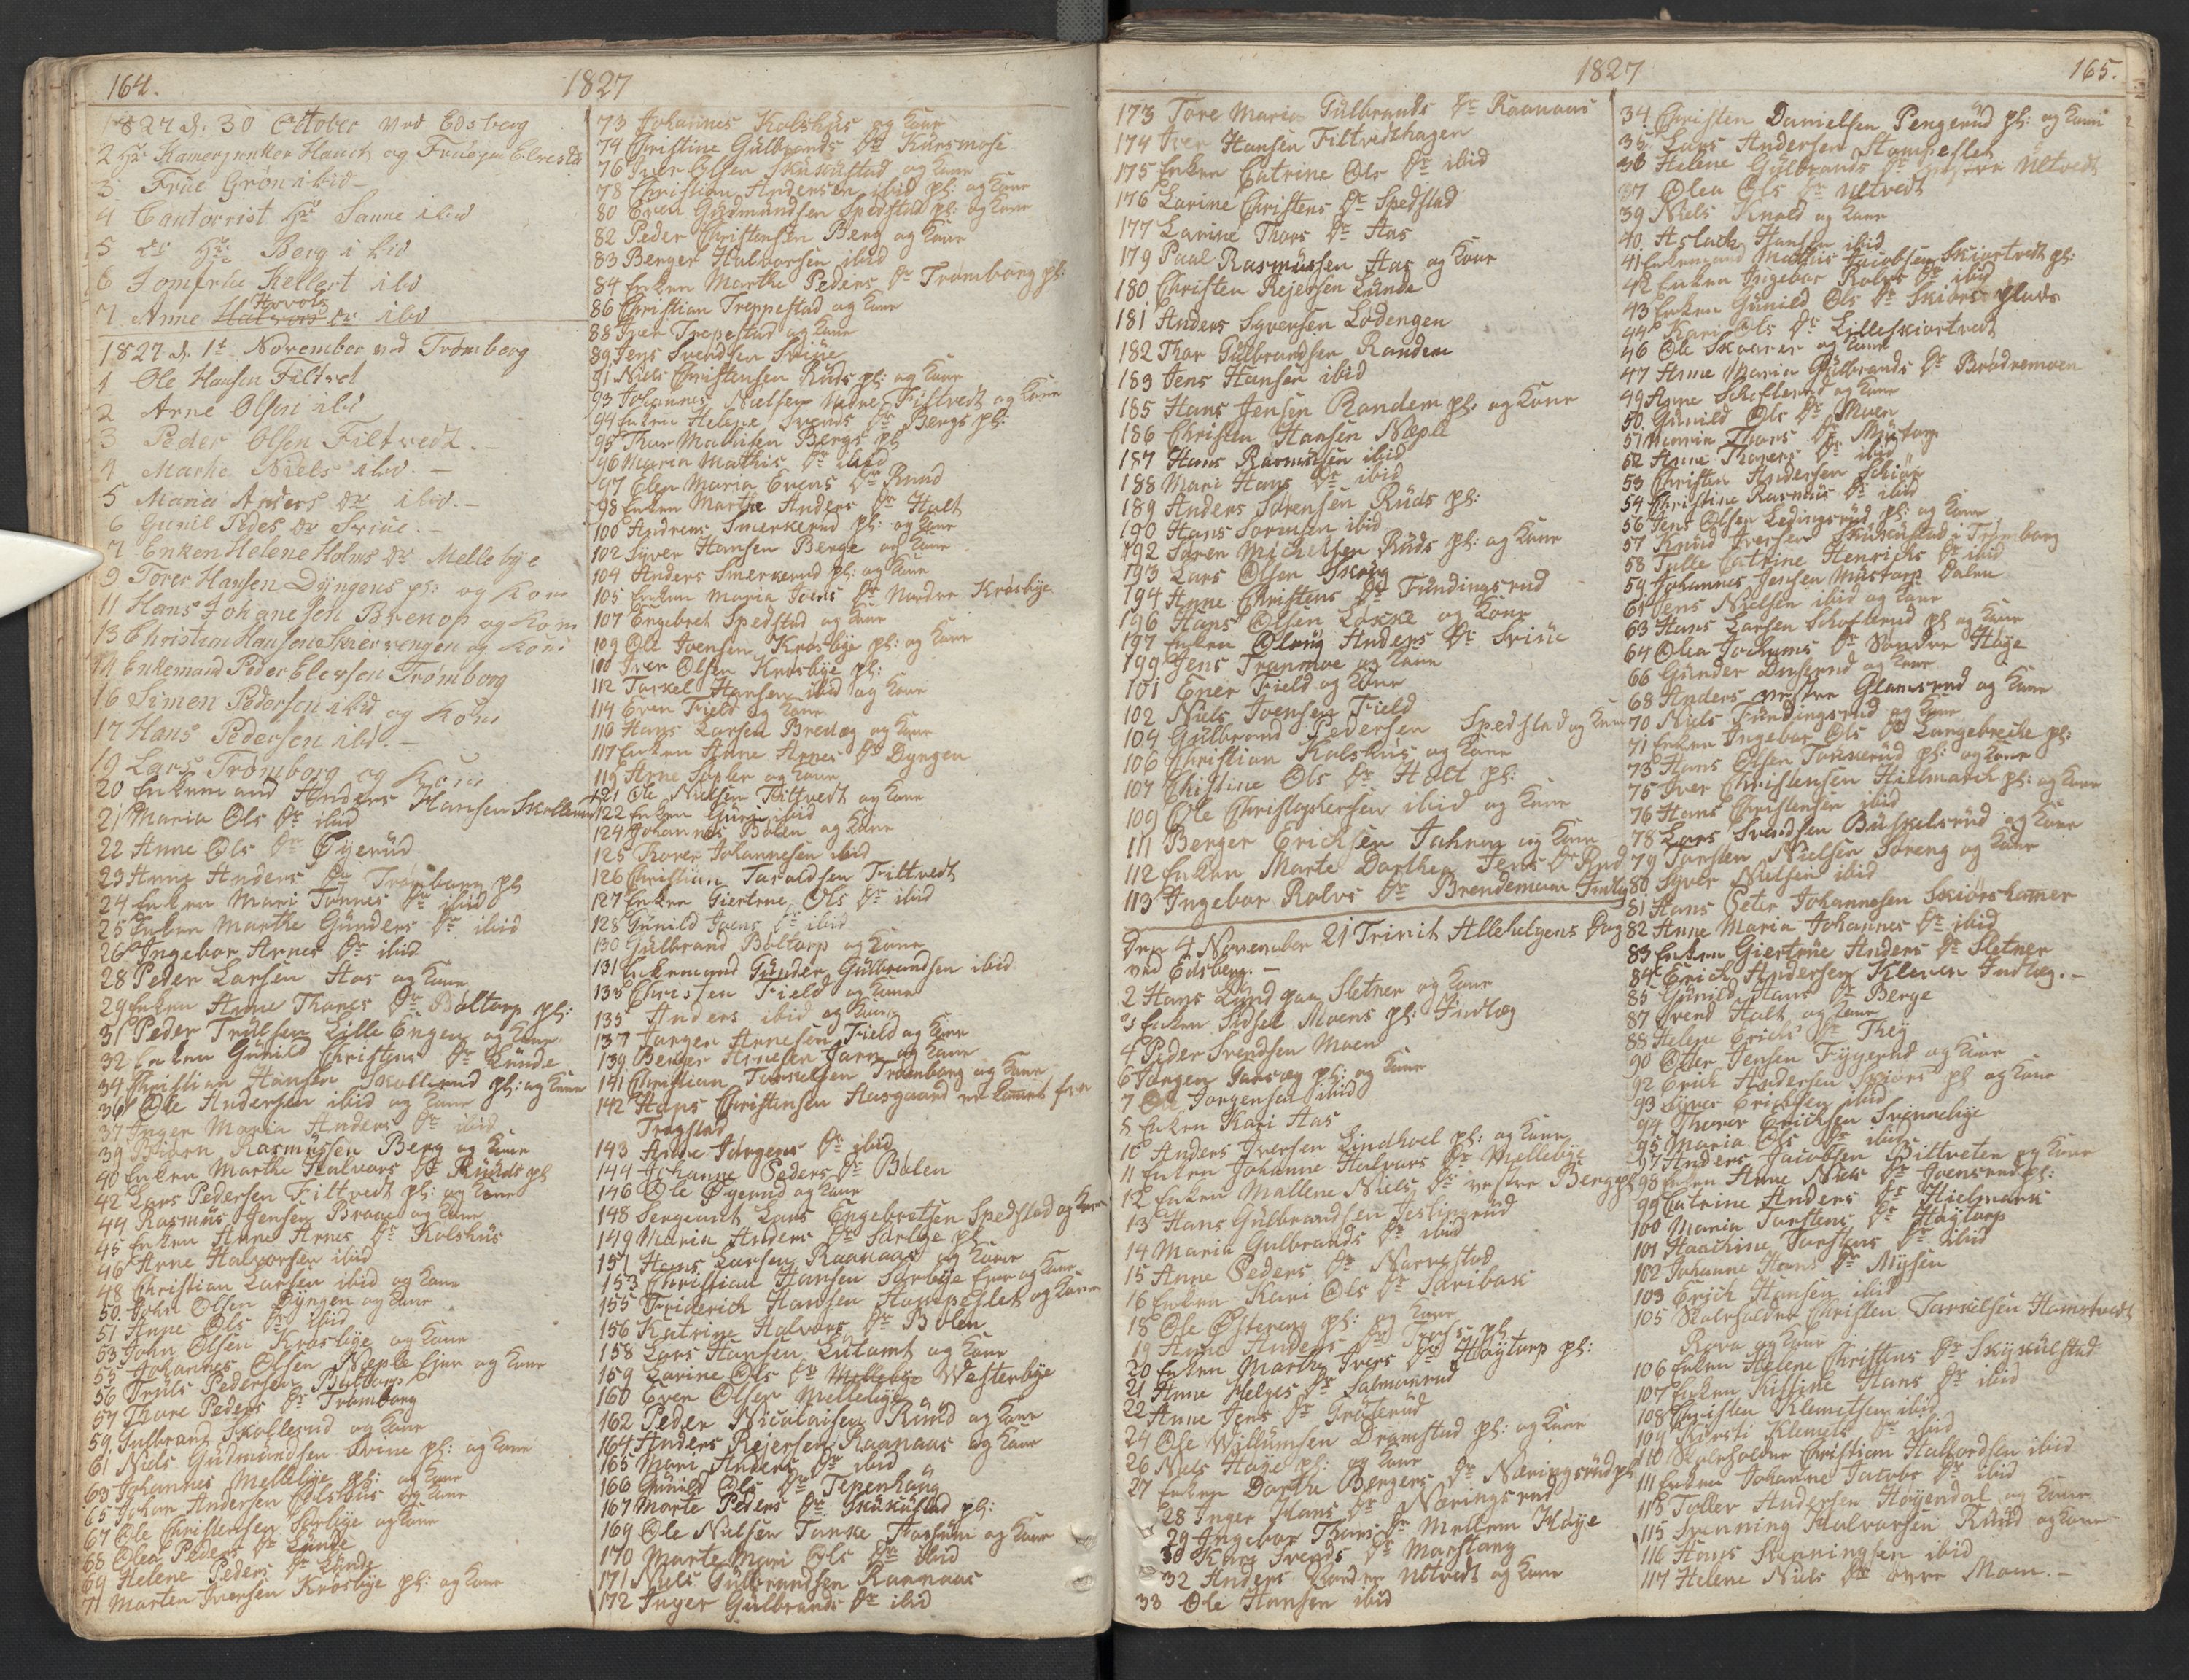 164.
1827
1827 d. 30 October ved Edsberg
2 Hr Kamerjunker Hauch og Frue
3 Frue Grøn ibid
4 Cantorrist Hr Sanne ibid
5 do Hr Berg ibid
6 Jomfrue Kellert ibd
7 Anne Arvols Dr ibd
1827 d. 1t November ved Trømborg
1 Ole Hansen Filtvet
2 Arne Olsen ibd
3 Peder Olsen Filtvedt. -
4 Marthe Niels ibd. -
5 Maria Anders Dr ibid. -
6 Gunil Pedes Dr Sviue. -
7 Enken Helene Holms Dr Mellebye
9 Torer Hansen Dyngens pl: og Kone
11 Hans Johanesen Brenop og Kone
13 Christian Hansen Skiersengen og Kone
14 Enkemand Peder Elevsen Trømborg
16 Simen Pedersen ibid og Kone
17 Hans Pedersen ibd. -
19 Lars Trømborg og Kone
20 Enkemand Anders Hansen Skollerud
21 Maria Ols Dr ibid
22 Anne Ols Dr Øyerud
23 Anne Anders Dr Tromborg pl
24 Enken Mari Tønnes Dr ibid
25 Enken Marthe Gunders Dr ibid
26 Ingebor Arnes Dr ibid
28 Peder Larsen Aas og Kone
29 Enken Anne Thores Dr Boltorp pl:
31 Peder Trulsen Lille Engen og Kone
32 Enken Gunild Christens Dr Lunde
34 Christian Hansen Skollerud pl: og Kone
36 Ole Andersen ibid og Kone
37 Inger Maria Anders Dr ibid
39 Biørn Rasmussen Berg og Kone
40 Enken Marthe Halvors Dr Ruuds pl
42 Lars Pedersen Filtvedt pl: og Kone
44 Rasmus Jensen Braae og Kone
45 Enken Anne Arnes Dr Kolshus
46 Arne Halvorsen ibid
48 Christian Larsen ibid og Kone
50 John Olsen Dyngen og Kone
51 Anne Ols Dr ibid
53 John Olsen Krosbye og Kone
55 Johannes Olsen Neple Eier og Kone
56 Truls Pedersen Boltorp
57 Thore Peders Dr Tromborg
59 Gulbrand Skollerud og Kone
61 Niels Gudmundsen Svine pl: og Kone
63 Johannes Mellebye pl: og Kone
65 Johan Andersen Colshus og Kone
67 Ole Christensen Sørbye og Kone
68 Olea Peders Dr Lunde
69 Helene Peders Dr Lunde
71 Morten Iversen Krosbye pl: og Kone
73 Johannes Kolshus og Kone
74 Christine Gulbrands Dr Kursmose
76 Iver Olsen Skukustad og Kone
78 Christian Andersen ibid pl: og Kone
80 Even Gudmundsen Spedstad pl: og Kone
82 Peder Christensen Berg og Kone
83 Berger Halvorsen ibid
84 Enken Marthe Peders Dr Trømborg pl:
86 Christian Treppestad og Kone
88 Iver Trepestad og Kone
89 Jens Svendsen Sviue
91 Niels Christensen Ruds pl: og Kone
93 Johannes Nielsen Nedre Filtvedt og Kone
94 Enken Helene Svends Dr Bergs pl:
95 Thor Mathisen Bergs pl
96 Maren Mathis Dr ibid
97 Elen Maria Evens Dr Ruud
98 Enken Marthe Anders Dr Holt
100 Andreas Smerkerud pl: og Kone
102 Syver Hansen Berge og Kone
104 Anders Smerkerud pl: og Kone
105 Enken Maria Joens Dr Nordre Krosbye
107 Engebret Spedstad og Kone
109 Ole Joensen Krosbye pl: og Kone
110 Iver Olsen Krosbye pl:
112 Taskel Hansen ibid og Kone
114 Even Field og Kone
116 Hans Larsen Bredeg og Kone
117 Enken Anne Arnes Dr Dyngen
119 Arne Supler og Kone
121 Ole Nielsen Filtvedt og Kone
122 Enken Guro ibid
124 Johannes Bolen og Kone
125 Thorer Johannesen ibid
126 Christian Taraldsen Filtvedt
127 Enken Giertrue Ols Dr ibid
128 Gunild Joens Dr ibid
130 Gulbrand Boltorp og Kone
131 Enkemand Gunder Gulbrandsen ibid
133 Christen Field og Kone
135 Anders ibid og Kone
137 Jørgen Arnesen Field og Kone
139 Berger Arnesen Jorn og Kone
141 Christian Torkelsen Tromborg og Kone
142 Hans Christensen Aasgaard er komet fra
Trøgstad
143 Anne Jørgens Dr ibid
144 Johanne Peders Dr Bølen
146 Ole Øyerud og Kone
148 Sergeant Lars Engebretsen Spedstad og Kone
149 Maria Anders Dr Sørbye pl
151 Hans Larsen Raanaas og Kone
153 Christian Hansen Sørbye Eier og Kone
155 Friderich Hansen Stompeslet og Kone
156 Katrine Halvors Dr Bølen
158 Lars Hansen Lutomt og Kone
159 Larine Ols Dr Mellebye Westerbye
160 Even Olsen Mellebye
162 Peder Nicolaisen Ruud og Kone
164 Anders Rejersen Raanaas og Kone
165 Mari Anders Dr ibid
166 Gunild Ols Dr Tipenhaug
167 Marte Peders Dr Skukustad pl:
169 Ole Nielsen Tanske Fossum og Kone
170 Marte Mari Ols Dr ibid
171 Niels Gulbrandsen Raanaas
172 Inger Gulbrands Dr ibid
1827
165.
173 Tore Maria Gulbrands Dr Raanaas
174 Iver Hansen Filtvedthagen
175 Enken Catrine Ols Dr ibid
176 Lavine Christens Dr Spedstad
177 Lavine Thors Dr Aas
179 Paal Rasmussen Aas og Kone
180 Christen Rejersen Lunde
181 Anders Syversen Lødengen
182 Thor Gulbrandsen Randem
183 Jens Hansen ibid
185 Hans Jensen Randem pl: og Kone
186 Christen Hansen Neple
187 Hans Rasmussen ibid
188 Mari Hans Dr ibid
189 Anders Sørensen Ruds pl:
190 Hans Sørensen ibid
192 Søren Michelsen Ruds pl: og Kone
193 Lars Olsen Skoug
194 Anne Christens Dr Fundingsrud
196 Hans Olsen Løkke og Kone
197 Enken Oloug Anders Dr Sviue
199 Jens Tranmoe og Kone
101 Ener Field og Kone
102 Niels Joensen Field
104 Gulbrand Pedersen Spedstad og Kone
106 Christian Kolshus og Kone
107 Christine Ols Dr Holt pl:
109 Ole Christophersen ibid og Kone
111 Berger Erichsen Jahren og Kone
112 Enken Marte Dorthea Jens Dr Rud
113 Ingebor Rolvs Dr Brendemoen Indlæg
Den 4 November 21 Trinit Allehelgens Dag
ved Edsberg. -
2 Hans Lund paa Sletner og Kone
3 Enken Sidsel Moens pl: Indlæg
4 Peder Svendsen Moen
6 Jørgen Garsæg pl: og Kone
7 Ole Jørgensen ibid
8 Enken Kari Aas
10 Anders Iversen Lindhoel pl: og Kone
11 Enken Johanne Halvors Dr Mellebye
12 Enken Mallene Niels Dr vestre Berg pl
13 Hans Gulbrandsen Jeslingrud
14 Maria Gulbrands Dr ibid
15 Anne Peders Dr Narvestad
16 Enken Kari Ols Dr Skribak
18 Ole Østereng pl: og Kone
19 Anne Anders Dr Fosse pl
20 Enken Marthe Ivers Dr Høytorp pl:
21 Anne Helges Dr Salmonrud
22 Anne Jens Dr Grøterud
24 Ole Willumsen Dramstad pl: og Kone
26 Niels Høye pl: og Kone
27 Enken Dorthe Bergers Dr Næringsrud pl
28 Inger Hans Dr Næringsrud
29 Ingebor Thors Dr Mellem Høye
30 Kari Svends Dr Morstong
32 Anders Søndre Utvedt og Kone
33 Ole Hansen ibid
34 Christen Danielsen Pengerud pl: og Kone
35 Lars Andersen Stompeslet
36 Helene Gulbrands Dr Østre Utvedt
37 Olea Ols Dr Utvedt
39 Niels Knold og Kone
40 Aslach Hansen ibid
41 Enkemand Mathis Jacobsen Skiortvedt pl:
42 Enken Ingebor Rolvs Dr ibid
43 Enken Gunild Ols Dr Skiørs plads
44 Kari Ols Dr Lilleskiortvedt
46 Ole Skaarer og Kone
47 Anne Maria Gulbrands Dr Brødremoen
49 Arne Schofterud og Kone
50 Gunild Ols Dr Moen
51 Maria Thors Dr Mustorp
52 Anne Thorers Dr ibid
53 Christen Andersen Schiør
54 Christine Rasmus Dr ibid
56 Jens Olsen Ledingsrud pl: og Kone
57 Knud Iversen Skukustad i Trømborg
58 Tolle Catrine Henrichs Dr ibid
59 Johannes Jensen Mustorp Dalen
61 Jens Nielsen ibid og Kone
63 Hans Larsen Schofterud pl og Kone
64 Olea Jochums Dr Søndre Høye
66 Gunder Duserud og Kone
68 Anders vestre Glamsrud og Kone
70 Niels Fundingsrud og Kone
71 Enken Ingebor Ols Dr Langebrecke pl:
73 Hans Olsen Torkerud pl: og Kone
75 Iver Christensen Hielmark pl: og Kone
76 Hans Christensen ibid
78 Lars Svendsen Buskelsrud og Kone
79 Torsten Nielsen Soreng og Kone
80 Syver Nielsen ibid
81 Hans Peter Johannesen Skiørshamer
82 Anne Maria Johannes Dr ibid
83 Enken Giertrue Anders Dr Sletner
84 Erich Andersen Kleven Indlæg. -
85 Gunild Hans Dr Berge
87 Svend Holt og Kone
88 Helene Erichs Dr They
90 Oller Jensen Fygerud og Kone
92 Erich Andersen Skiørs pl og Kone
93 Syver Erichsen ibid
94 Thorer Erichsen Svennebye
95 Maria Ols Dr ibid
97 Anders Jacobsen Biltveten og Kone
98 Enken Anne Niels Dr Joensrud pl:
99 Catrine Anders Dr Hielmark
100 Maria Torstens Dr Høytorp
101 Haachine Torstens Dr ibid
102 Johanne Hans Dr Mysen
103 Erich Hansen ibid
105 Skoleholder Christen Torkelsen Homstvedt
Rova og Kone
106 Enken Helene Christens Dr Skykulestad
107 Enken Kistine Hans Dr ibid
108 Christen Klemetsen ibid
109 Kirsti Klemets Dr ibid
110 Skoleholder Christian Halvordsen ibid
111 Enken Johanne Jacobs Dr ibid
113 Toller Andersen Høyendal og Kone
115 Svenning Halvorsen Ruud og Kone
116 Hans Svenningsen ibid
117 Helene Niels Dr øvre Moen. -